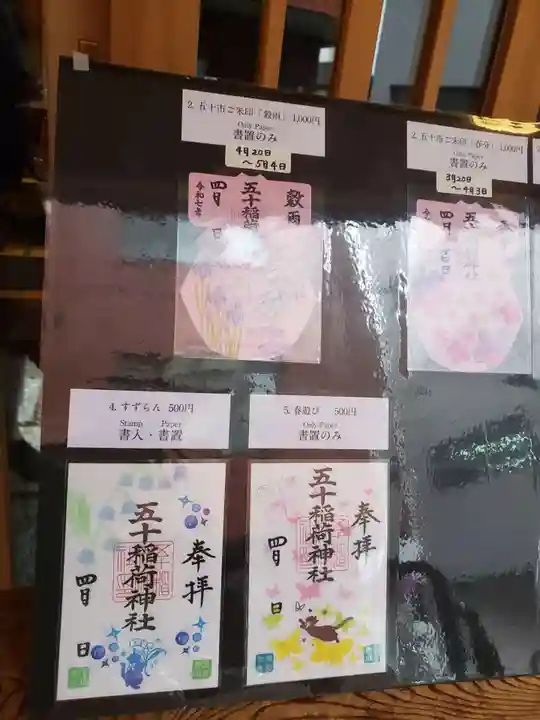 2. 五十市ご朱印「穀雨」 1,000円
Only Paper
書置のみ
4月20日
～5月4日
穀雨
五十稲荷
四月 日
令和七年
2. 五十市ご朱印「春分」 1,000円
Only Paper
書置のみ
3月20日
～4月3日
神社
四月 日
4. すずらん 500円
Stamp Paper
書入・書置
奉拝
五十稲荷神社
四月 日
5. 春遊び 500円
Only Paper
書置のみ
奉拝
五十稲荷神社
四月 日